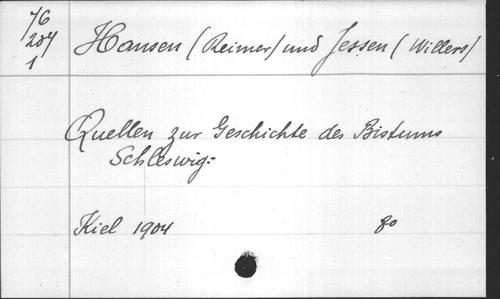 76
207
1
Hansen (Reimer) und Jessen (Willers)
Quellen zur Geschichte des Bistums
Schleswig.-
Kiel 1904 8o